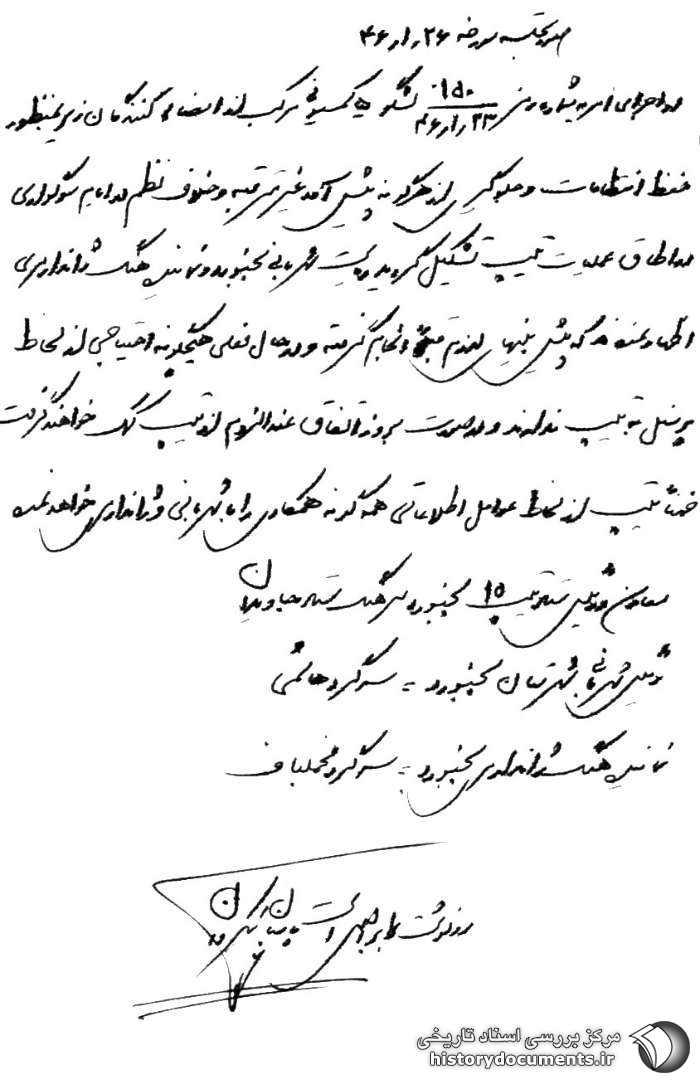 صورتجلسه مورخه ۴۶،۱،۲۶
در اجرای امریه شماره ۰۱۵۰ ۴۶/۱/۲۳ لشگر کمیسیونی مرکب از امضاء کنندگان زیر بمنظور
حفظ انتظامات و جلوگیری از هرگونه پیش آمد غیر مترقبه و خلاف نظم در ایام سوگواری
در اطاق عملیات تیپ تشکیل گردید ریاست شهربانی بجنورد و نماینده هنگ ژاندارمری
اظهار نمودند که پیش بینیهای لازم قبلاً انجام گرفته و در حال فعلی هیچگونه احتیاجی از لحاظ
پرسنل به تیپ ندارند و در صورت بروز اتفاق عنداللزوم از تیپ کمک خواهند گرفت
ضمناً تیپ از لحاظ عوامل اطلاعاتی همه گونه همکاری را با شهربانی و ژاندارمری خواهد نمود
معاون و رئیس ستاد تیپ ۱۵ بجنورد سرهنگ ستاد جاویدان
رئیس شهربانی شهرستان بجنورد = سرگرد هاشمی
نماینده هنگ ژاندارمری بجنورد = سرگرد مخملباف
رونوشت برابر اصل است
مرکز بررسی اسناد تاریخی
historydocuments.ir